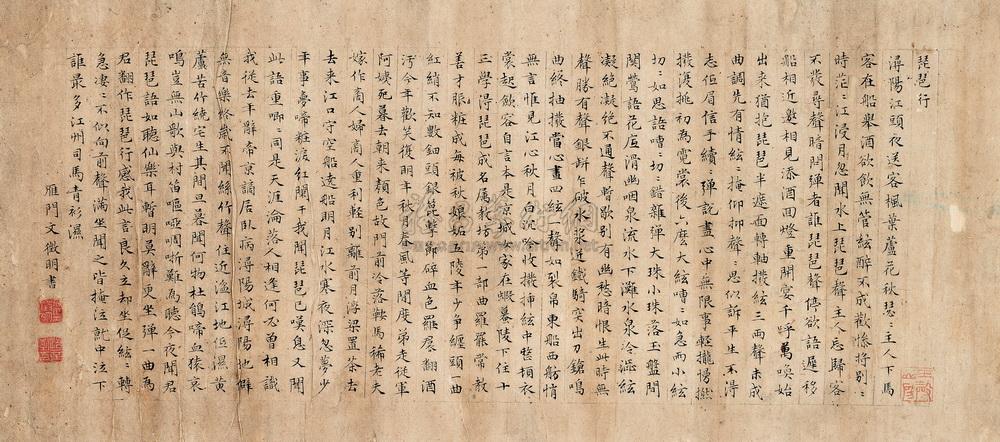 琵琶行
潯陽江頭夜送客楓葉蘆花秋瑟〻主人下馬
客在船舉酒欲飲無管絃醉不成歡慘將別〻
時茫〻江浸月忽聞水上琵琶聲主人忘歸客
不發尋聲暗問彈者誰琵琶聲停欲語遲移
船相近邀相見添酒回燈重開宴千呼萬喚始
出來猶抱琵琶半遮面轉軸撥絃三兩聲未成
曲調先有情絃〻掩仰抑聲〻思似訴平生不得
志低眉信手續〻彈説盡心中無限事輕攏慢撚
撥復挑初為霓裳後六麽大絃嘈〻如急雨小絃
切〻如思語嘈〻切〻錯雜彈大珠小珠落玉盤間
關鶯語花底滑幽咽泉流水下灘水泉冷澁絃
凝絶凝絶不通聲暫歇別有幽愁暗恨生此時無
聲勝有聲銀缾乍破水漿迸鐵騎突出刀鎗鳴
曲終抽撥當心畫四絃一聲如裂帛東船西舫悄
無言惟見江心秋月白沉吟收撥插絃中整頓衣
裳起斂容自言本是京城女家在蝦蟇陵下住十
三學得琵琶成名属教坊第一部曲羅羅常教
善才服粧成每被秋孃妬五陵年少争纏頭一曲
紅綃不知數鈿頭銀篦擊節碎血色羅裙翻酒
污今年歡笑復明年秋月春風等閒度弟走從軍
阿姨死暮去朝来顔色故門前冷落鞍馬稀老大
嫁作商人婦商人重利輕別離前月浮梁買茶去
去来江口守空船遶船明月江水寒夜深忽夢少
年事夢啼粧淚紅闌干我聞琵琶已嘆息又聞
此語重唧〻同是天涯淪落人相逢何必曾相識
我從去年辭帝京謫居卧病潯陽城潯陽地僻
無音樂終歲不聞絲竹聲住近湓江地低濕黄
蘆苦竹繞宅生其間旦暮聞何物杜鵑啼血猿哀
鳴豈無山歌與村笛嘔啞啁哳難為聽今夜聞君
琵琶語如聽仙樂耳暫明莫辭更坐彈一曲為
君翻作琵琶行感我此言良久立却坐促絃〻轉
急凄〻不似向前聲滿坐聞之皆掩泣就中泣下
誰最多江州司馬青衫濕
雁門文徵明書